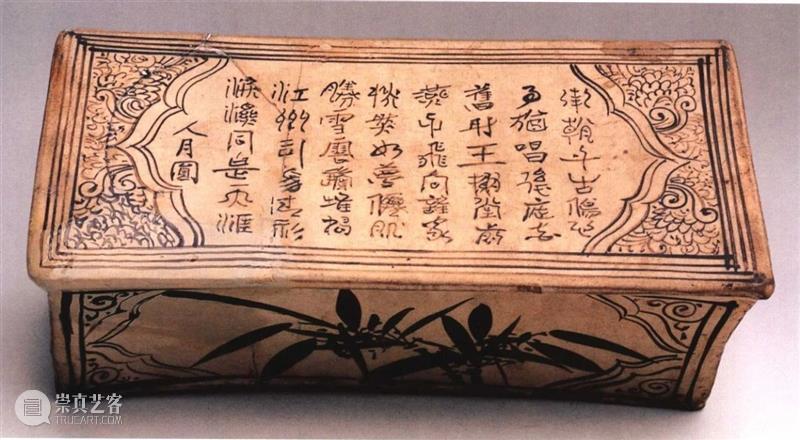 南朝千古傷心
事猶唱後庭花
舊時王謝堂前
燕子飛向誰家
恍然如夢僊肌
勝雪堆鴉
江州司馬衫
淚濕同是天涯
人月圓
崇真艺客
TRUEART.COM